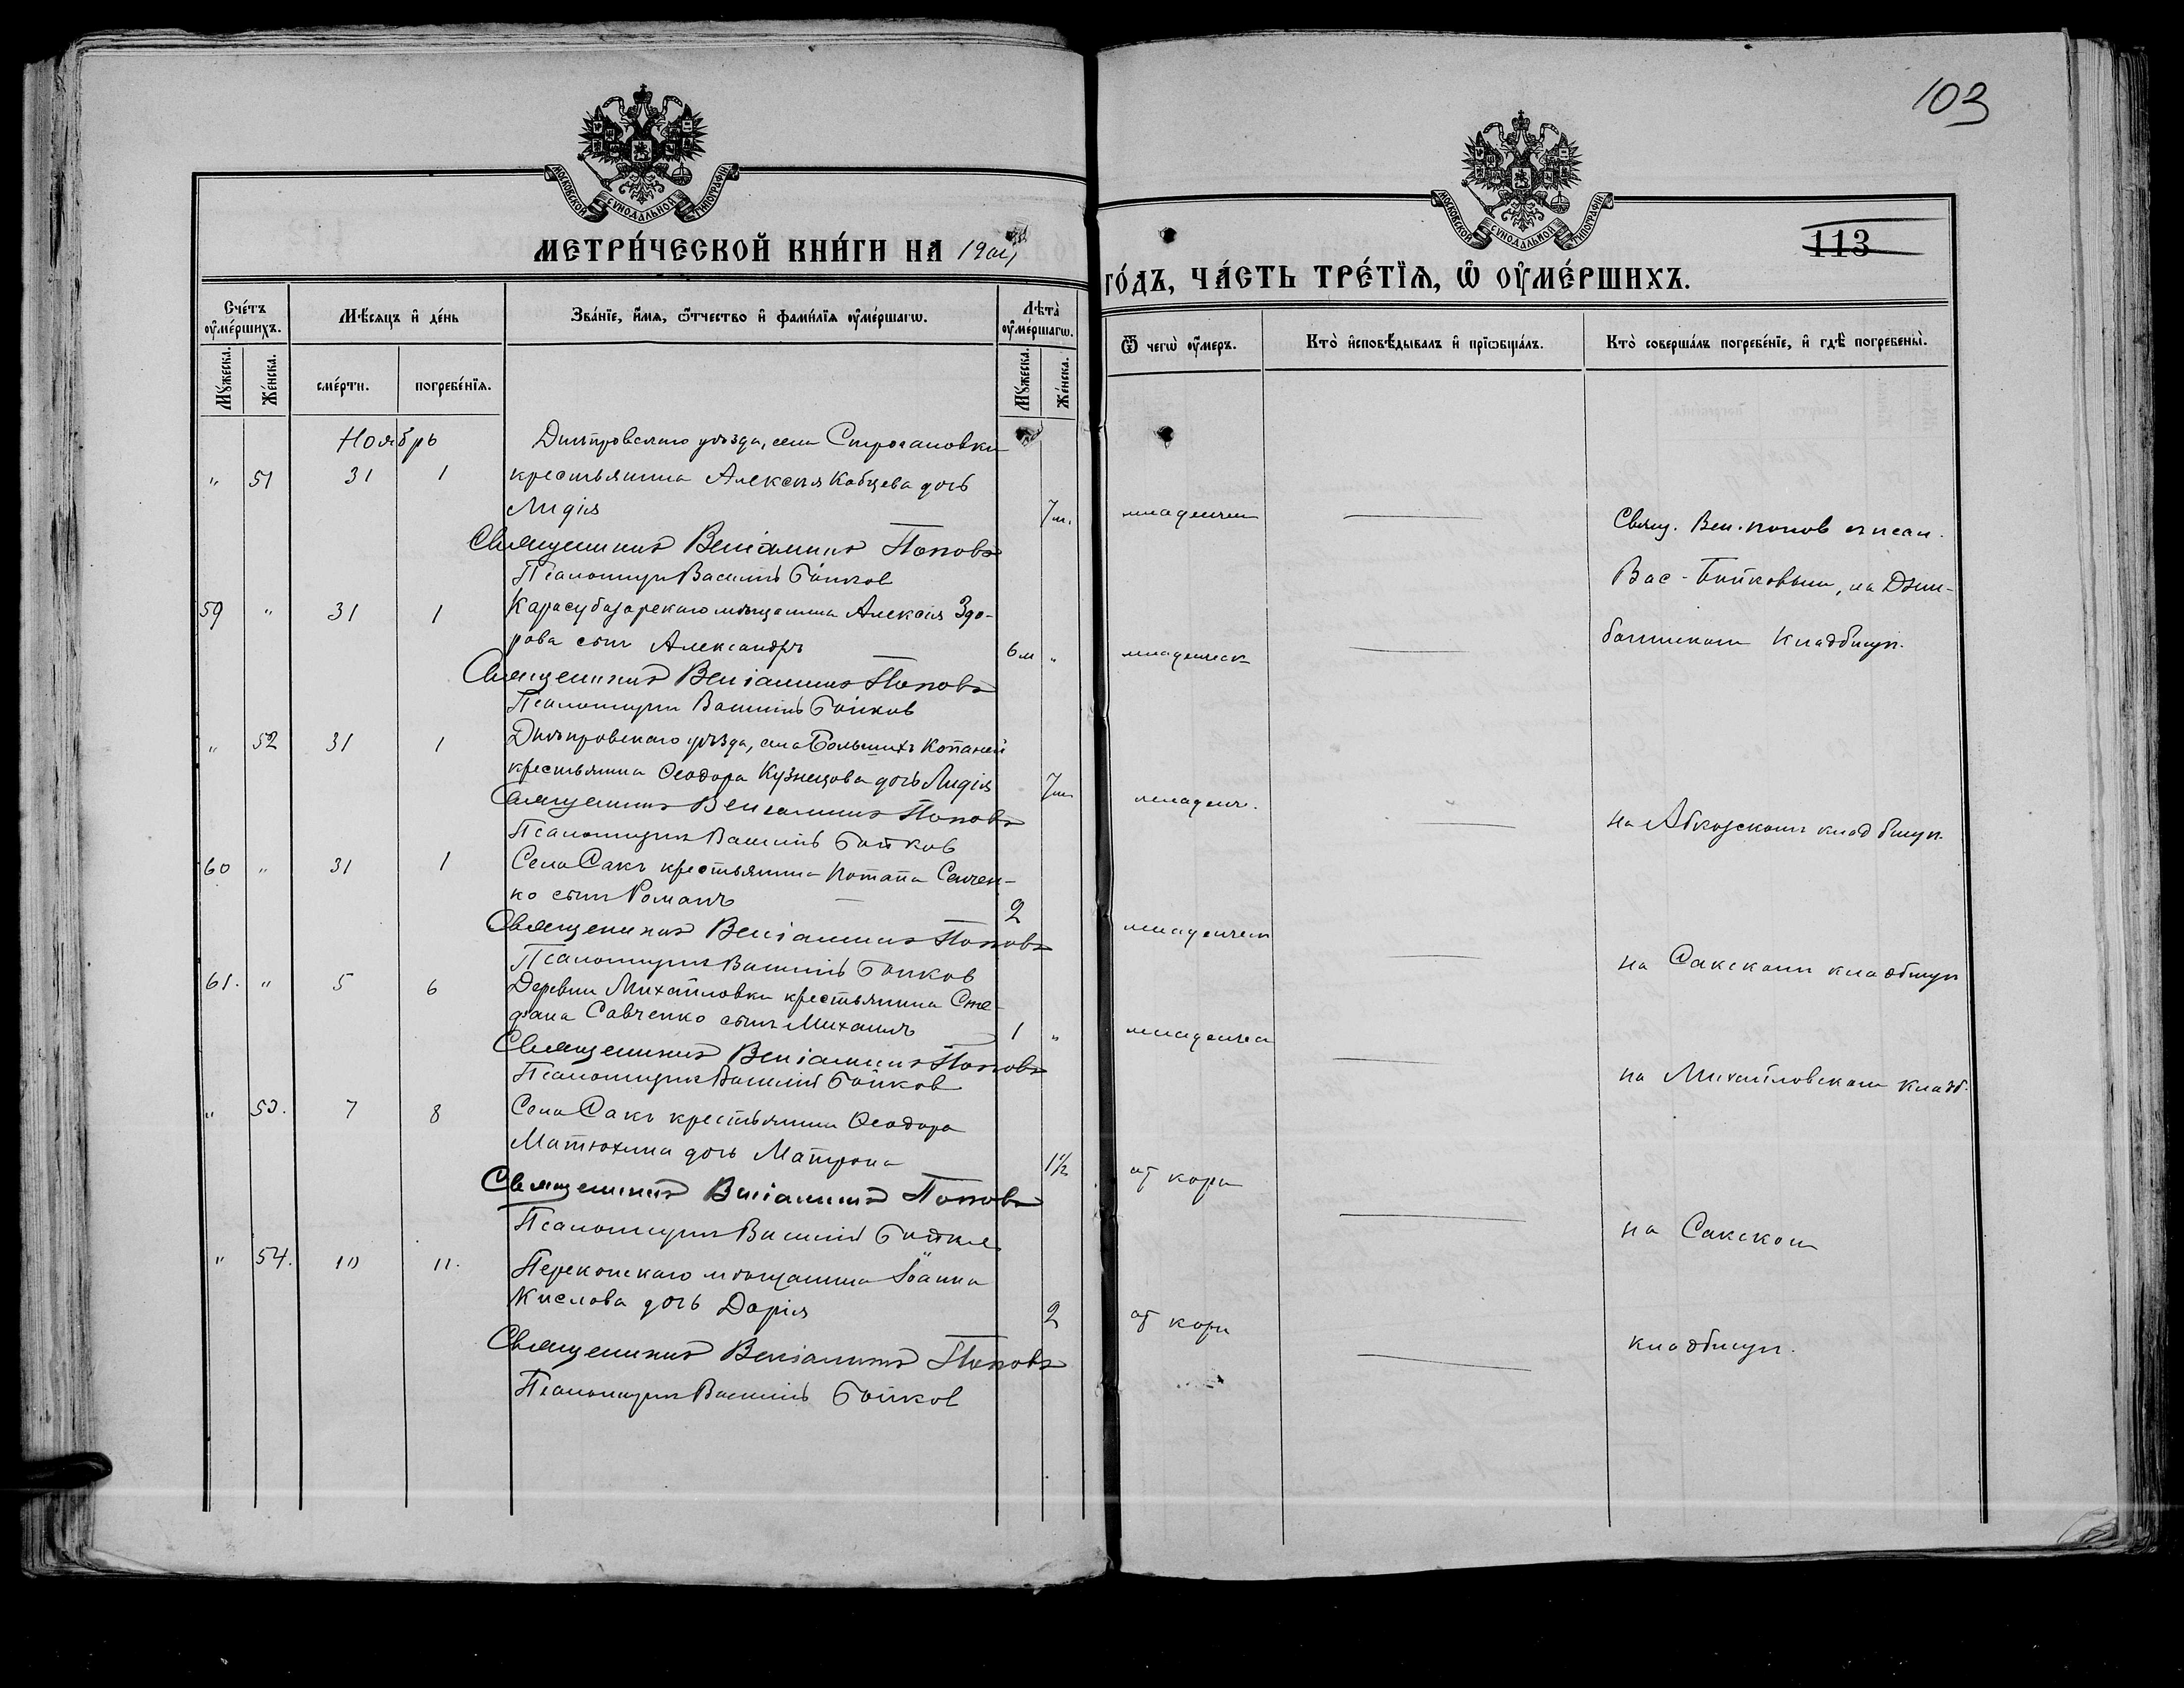 103
МОСКОВСКОЙ СУНОДАЛЬНОЙ ТИПОГРАФІИ
МОСКОВСКОЙ СУНОДАЛЬНОЙ ТИПОГРАФІИ
МЕТРИ́ЧЕСКОЙ КНИ́ГИ НА 1904
ГО́ДЪ, ЧА́СТЬ ТРЕ́ТІѦ, Ѿ ОУ҆МЕ́РШИХЪ.
113
Сче́тъ оу҆ме́ршихъ.
Мѣ́сѧцъ и҆ де́нь
Зва́нїе, и҆́мѧ, ѻ҆́тчество и҆ фами́лїѧ оу҆ме́ршагѡ.
Лѣ́та оу҆ме́ршагѡ.
Ѿ чегѡ̀ оу҆́меръ.
Кто̀ и҆сповѣ́дывалъ и҆ прїѡбща́лъ.
Кто̀ соверша́лъ погребе́нїе, и҆ гдѣ̀ погребены̀.
Мꙋ́жеска. Же́нска. сме́рти. погребе́нїѧ. Мꙋ́жеска. Же́нска.
Ноябрь
Днѣпровскаго уѣзда, села Строгановки
" 51 31 1 крестьянина Алексѣя Кобцева дочь
Лидія 7 м. младенческ
Священникъ Веніаминъ Поповъ
Свящ. Вен. Попов с псал.
Псаломщик Василій Бойков
Вас. Бойковым, на
59 " 31 1 Карасубазарскаго мѣщанина Алексія Здо-
рова сынъ Александръ 6 м " младенческ
кладбищѣ.
Священникъ Веніаминъ Поповъ
Псаломщик Василій Бойков
" 52 31 1 Днѣпровскаго уѣзда, села Большихъ Копаней
крестьянина Ѳеодора Кузнецова дочь Лидія 7 м младенч.
Священникъ Веніаминъ Поповъ
на кладбищѣ.
Псаломщик Василій Бойков
60 " 31 1 Села Сакъ крестьянина Потапа Сенчен-
ко сынъ Романъ 2 младенческ
Священникъ Веніаминъ Поповъ
на Сакском кладбищѣ
Псаломщик Василій Бойков
61. " 5 6 Деревни Михайловки крестьянина Сте-
фана Савченко сынъ Михаилъ 1 " младенческ
Священникъ Веніаминъ Поповъ
на Михайловском кладб.
Псаломщик Василій Бойков
" 53. 7 8 Села Сакъ крестьянина Ѳеодора
Матюхина дочь Матрона 1½ от кори
Священникъ Веніаминъ Поповъ
на Сакском
Псаломщик Василій Бойков
" 54. 10 11. Перекопскаго мѣщанина Іоанна
Кислова дочь Дарія 2 от кори
кладбищѣ.
Священникъ Веніаминъ Поповъ
Псаломщик Василій Бойков